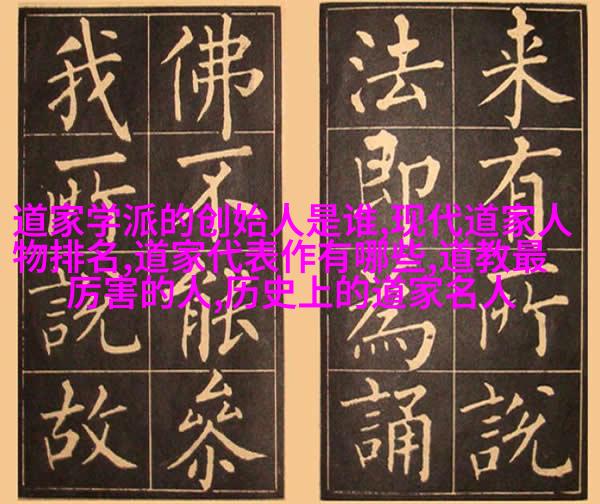 来有所說
法即為誦
佛不能參
我所說故
道家学派的创始人是谁,现代道家人
物排名,道家代表作有哪些,道教最
厉害的人,历史上的道家名人